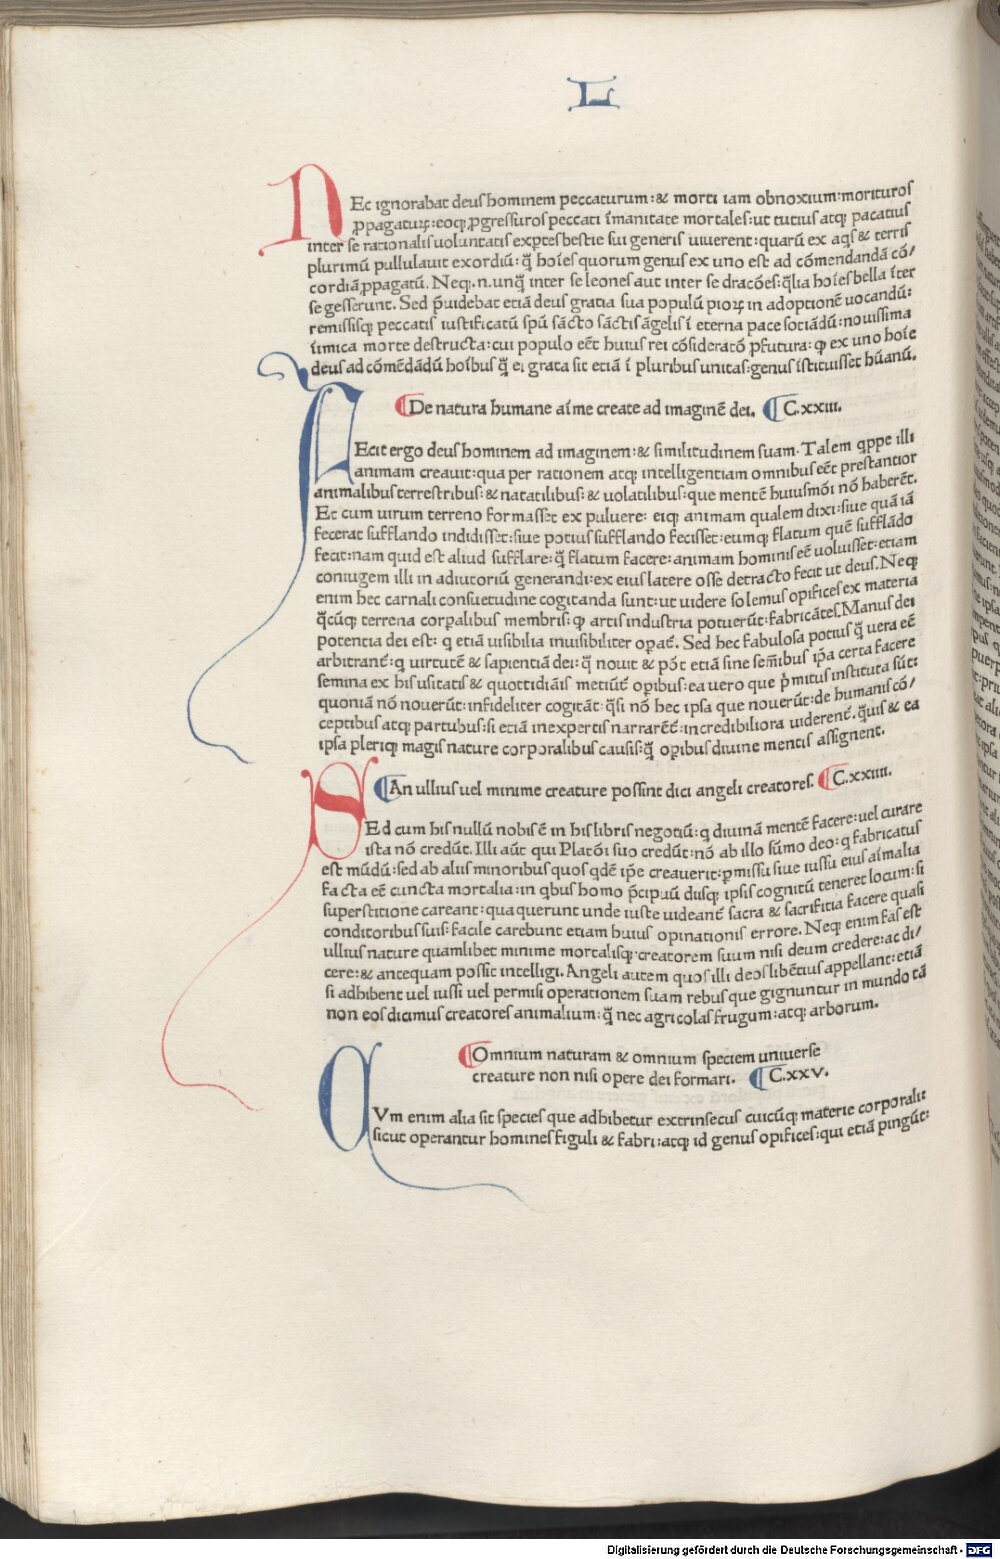 L
NEc ignorabat deus hominem peccaturum: & morti iam obnoxium: morituros
ꝓpagaturꝫ: eoqꝫ ꝓgressuros peccati īmanitate mortales: ut tutius atqꝫ pacatius
inter se rationalis uoluntatis exꝑtes bestie sui generis uiuerent: quarū ex aqͥs & terris
plurimū pullulauit exordiū: q̄ hoīes quorum genus ex uno est ad cōmendandā cō/
cordiā ꝓpagatū. Neqꝫ .n. unq̄ inter se leones aut inter se dracōes: q̄lia hoīes bella īter
se gesserunt. Sed p̄uidebat etiā deus gratia sua populū pioꝝ in adoptionē uocandū:
remissisqꝫ peccatis iustificatū spū sācto sāctis āgelis ī eterna pace sociādū: nouissima
iīmica morte destructa: cui populo eēt huius rei cōsideratō ꝓfutura: ꝙ ex uno hoīe
deus ad cōmēdādū hoībus q̄ ei grata sit etiā ī pluribus unitas: genus īstituisset hūanū.
De natura humane aīme create ad imaginē dei. C.xxiii.
FEcit ergo deus hominem ad imaginem: & similitudinem suam. Talem qͥppe illi
animam creauit: qua per rationem atqꝫ intelligentiam omnibus eēt prestantior
animalibus terrestribus: & natatilibus: & uolatilibus: que mentē huiusmōi nō haberēt.
Et cum uirum terreno formasset ex puluere: eiqꝫ animam qualem dixi: siue quā iā
fecerat sufflando indidisset: siue potius sufflando fecisset: eumqꝫ flatum quē sufflādo
fecit: nam quid est aliud sufflare: q̄ flatum facere: animam hominis eē uoluisset: etiam
coniugem illi in adiutoriū generandi: ex eius latere osse detracto fecit ut deus. Neqꝫ
enim hec carnali consuetudine cogitanda sunt: ut uidere solemus opifices ex materia
q̄cūqꝫ terrena corpalibus membris: ꝙ artis industria potuerūt: fabricātes. Manus dei
potentia dei est: q etiā uisibilia inuisibiliter opat̄. Sed hec fabulosa potius q̄ uera eē
arbitrant̄: q uirtutē & sapientiā dei: q̄ nouit & pōt etiā sine semībus ip̄a certa facere
semina ex his usitatis & quottidiāis metiūt̄ opibus: ea uero que p̄mitus instituta sūt:
quoniā nō nouerūt: infideliter cogitāt: q̄si nō hec ipsa que nouerūt: de humanis cō/
ceptibus atqꝫ partubus: si etiā inexpertis narrarēt̄: incredibiliora uiderent̄. q̄uis & ea
ipsa pleriqꝫ magis nature corporalibus causis: q̄ opibus diuine mentis assignent.
An ullius uel minime creature possint dici angeli creatores. C.xxiiii.
SEd cum his nullū nobis ē in his libris negotiū: q diuinā mentē facere: uel curare
ista nō credūt. Illi aūt qui Platōi suo credūt: nō ab illo sūmo deo: q fabricatus
est mūdū: sed ab aliis minoribus quos qͥdē ip̄e creauerit: ꝑmissu siue iussu eius aīmalia
facta eē cuncta mortalia: in qͥbus homo p̄cipuū diisqꝫ ipsis cognitū teneret locum: si
superstitione careant: qua querunt unde iuste uideant̄ sacra & sacrificia facere quasi
conditoribus suis: facile carebunt etiam huius opinationis errore. Neqꝫ enim fas est
ullius nature quamlibet minime mortalisqꝫ creatorem suum nisi deum credere: ac di/
cere: & antequam possit intelligi. Angeli autem quos illi deos libētius appellant: etiā
si adhibent uel iussi uel permisi operationem suam rebus que gignuntur in mundo tā
non eos dicimus creatores animalium: q̄ nec agricolas frugum: atqꝫ arborum.
Omnium naturam & omnium speciem uniuerse
creature non nisi opere dei formari. C.xxv.
CVm enim alia sit species que adhibetur extrinsecus cuicūqꝫ materie corporali:
sicut operantur homines figuli & fabri: atqꝫ id genus opifices: qui etiā pingūt:
Digitalisierung gefördert durch die Deutsche Forschungsgemeinschaft - DFG